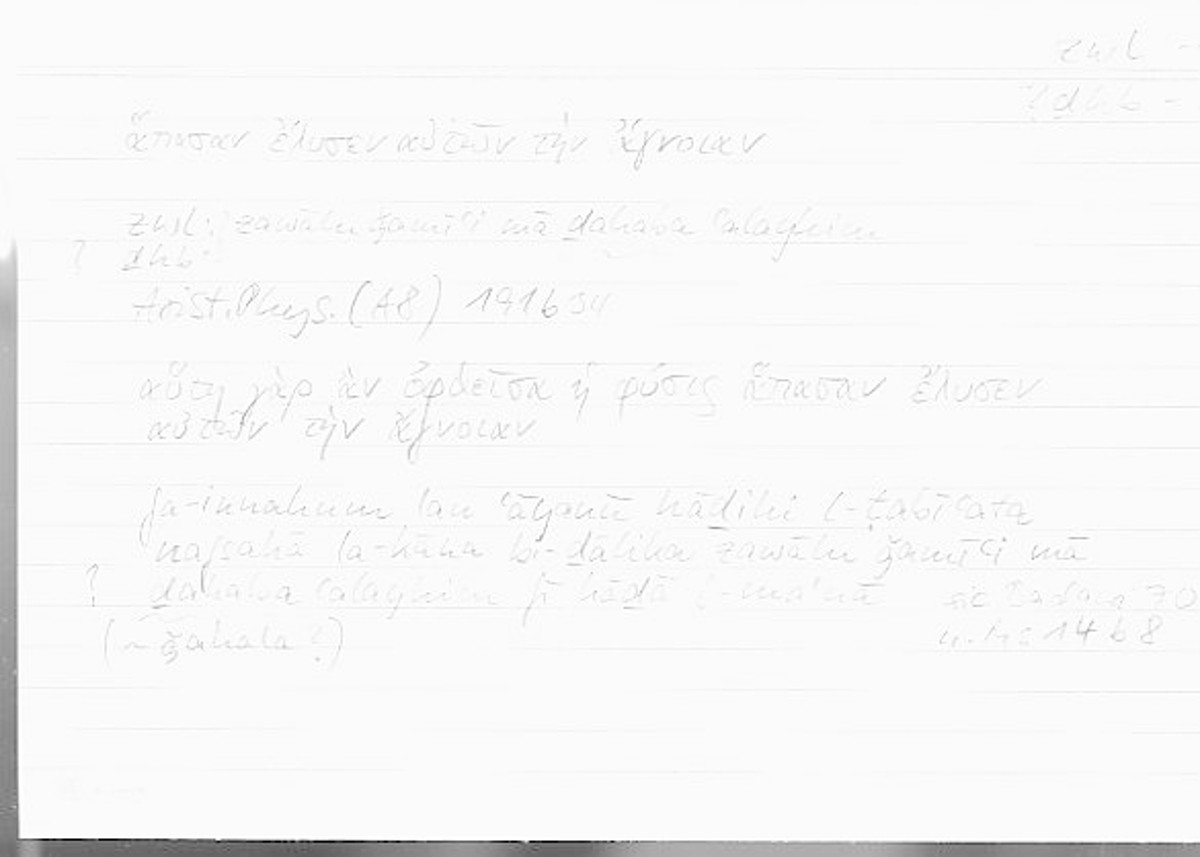 zwl -
? ḏhb -
ἅπασαν ἔλυσεν αὐτῶν τὴν ἄγνοιαν
zwl: zawālu ǧamīʿi mā ḏahaba ʿalayhim
? ḏhb:
Arist. Phys. (A8) 191b34
αὕτη γὰρ ἂν ὀφθεῖσα ἡ φύσις ἅπασαν ἔλυσεν
αὐτῶν τὴν ἄγνοιαν
fa-innahum lau ʿāyanū hāḏihi l-ṭabīʿata
nafsahā la-kāna bi-ḏālika zawālu ǧamīʿi mā
? ḏahaba ʿalayhim fī hāḏā l-maʿnā sic Badawī 70
(~ ǧahala?) u. Hs 14b8